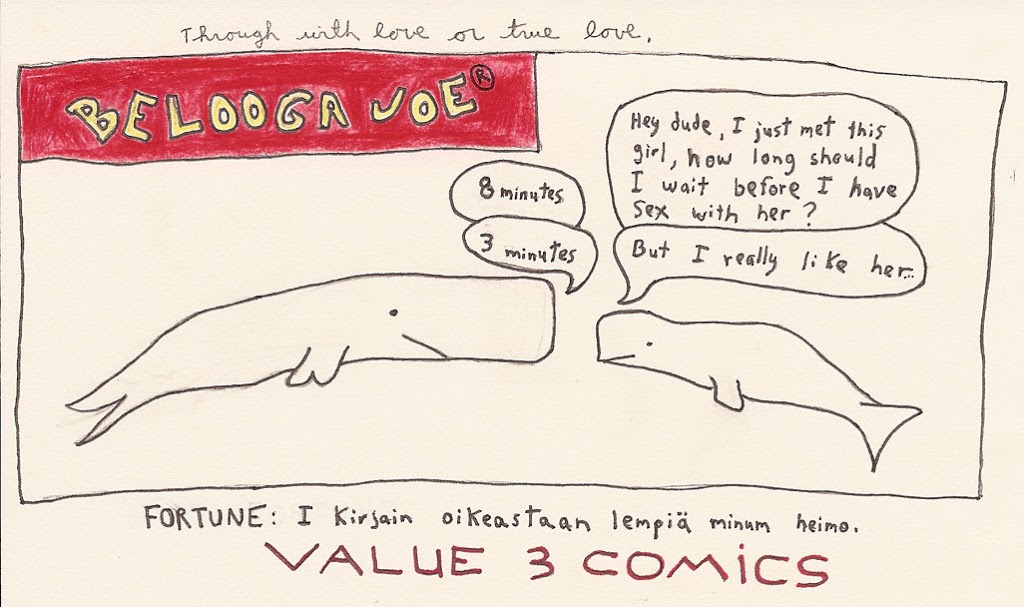 Through with love or true love.
BELOOGA JOE®
Hey dude, I just met this
girl, how long should
I wait before I have
sex with her?
8 minutes
But I really like her...
3 minutes
FORTUNE: I Kirjain oikeastaan lempiä minum heimo.
VALUE 3 COMICS